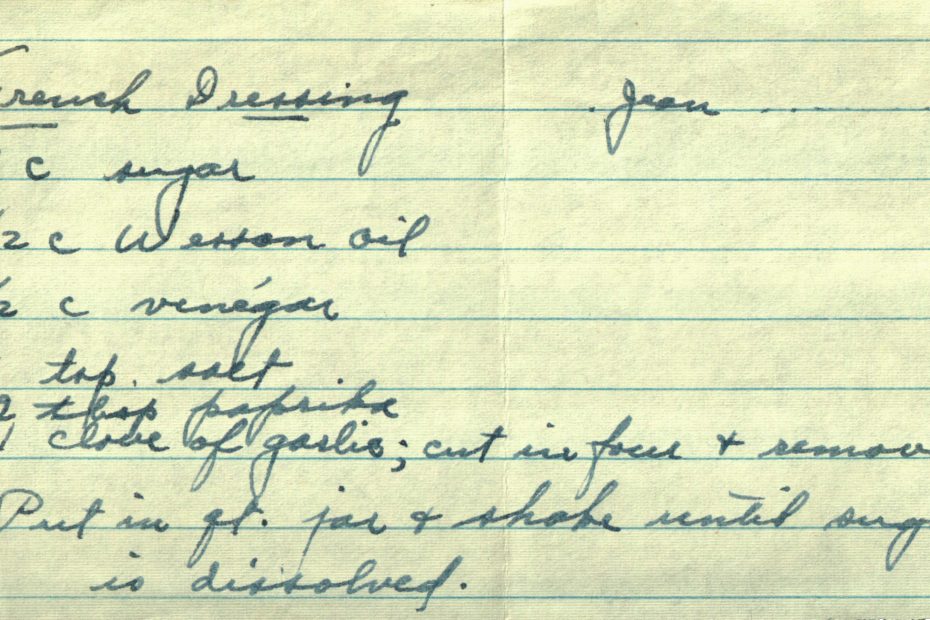 French Dressing . Jean . . . . .
c sugar
/2 c Wesson oil
/2 c vinegar
tsp. salt
2 tbsp paprika
1 clove of garlic; cut in four + remov
Put in qt. jar + shake until sug
is dissolved.